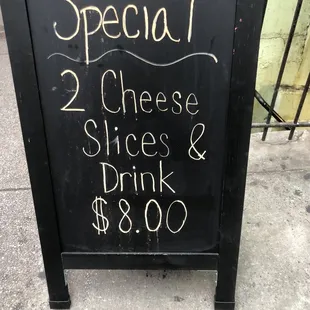 Special
2 Cheese
Slices &
Drink
$8.00